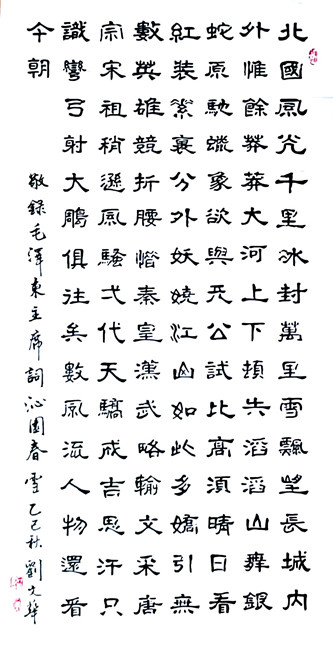 北國風光千里冰封萬里雪飄望長城内
外惟餘莽莽大河上下頓失滔滔山舞銀
蛇原馳蠟象欲與天公試比高須晴日看
紅裝素裹分外妖嬈江山如此多嬌引無
數英雄競折腰惜秦皇漢武略輸文采唐
宗宋祖稍遜風騷弌代天驕成吉思汗只
識彎弓射大鵰俱往矣數風流人物還看
今朝
敬錄毛澤東主席詞沁園春雪乙巳秋劉文華